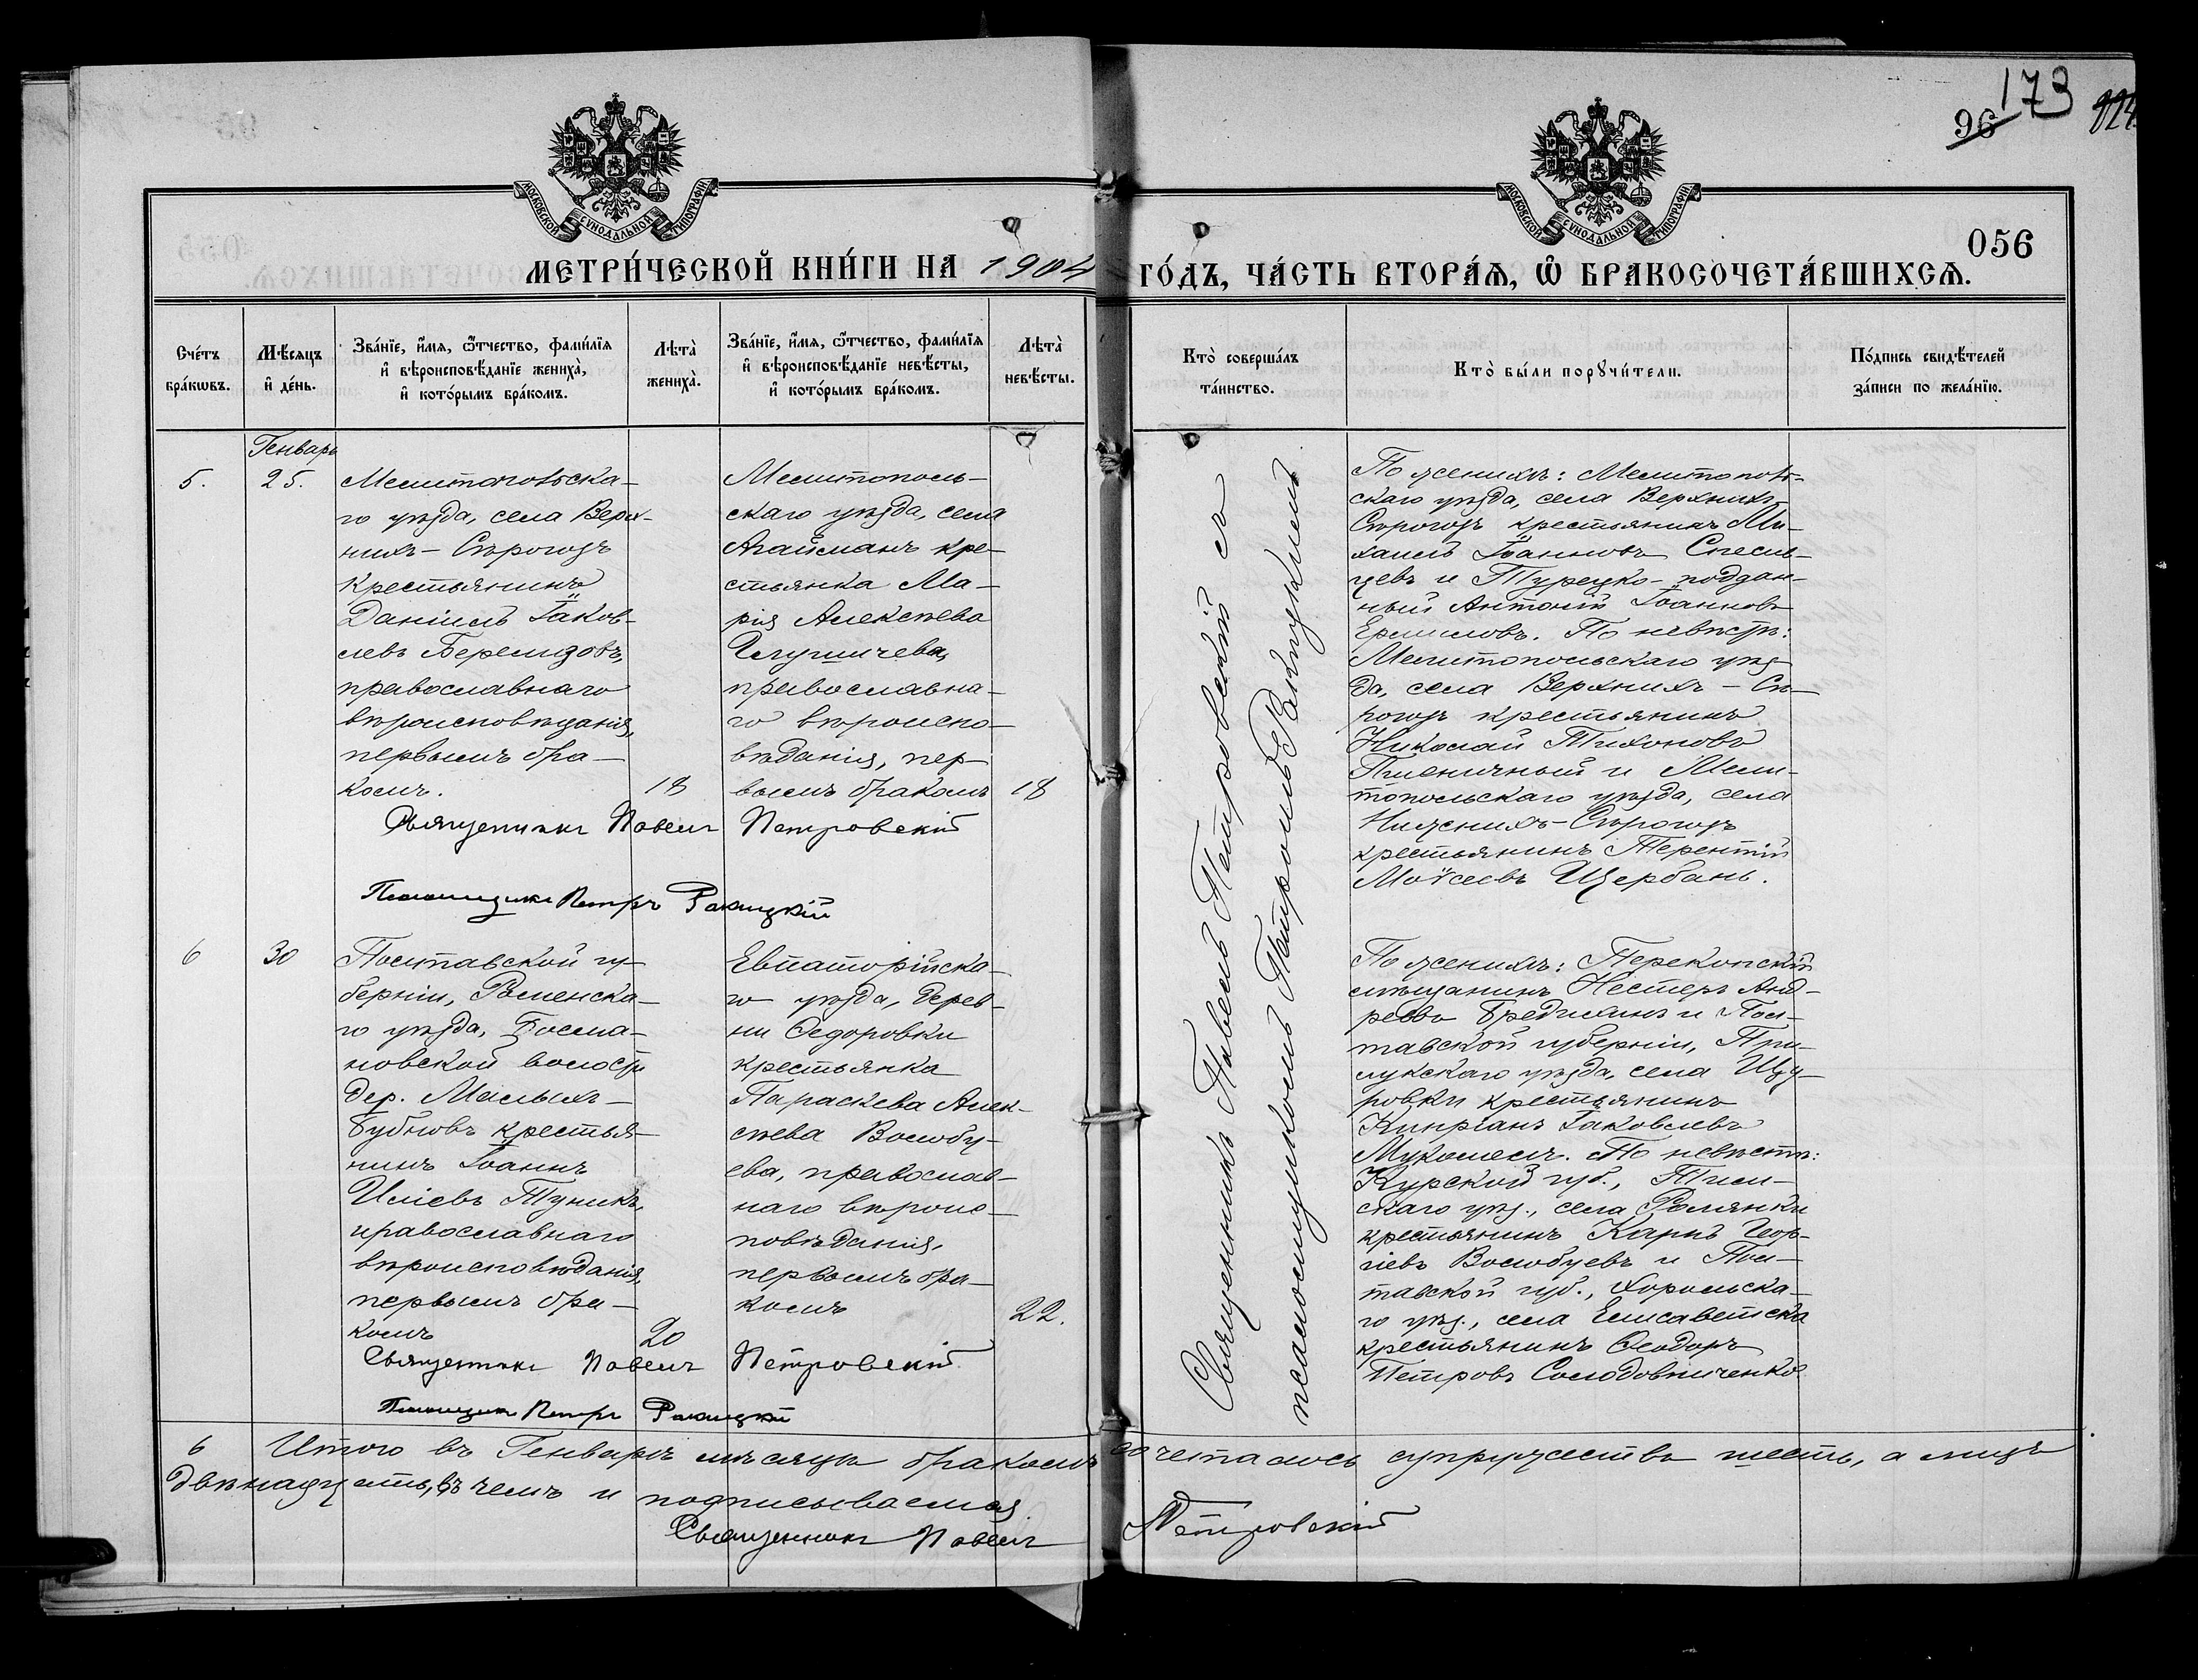 173
96
МОСКОВСКОЙ СѴНОДАЛЬНОЙ ТИПОГРАФІИ
МОСКОВСКОЙ СѴНОДАЛЬНОЙ ТИПОГРАФІИ
056
МЕТРИ́ЧЕСКОЙ КНИ́ГИ НА 1904
ГО́ДЪ, ЧА́СТЬ ВТОРА́Ѧ, Ѽ БРАКОСОЧЕТА́ВШИХСѦ.
Сче́тъ
бра́кѡвъ.
Мѣ́сяцъ
и҆ де́нь.
Зва́нїе, и҆́мѧ, ѻ҆́тчество, фами́лїѧ
и҆ вѣроисповѣ́данїе жениха̀,
и҆ кото́рымъ бра́комъ.
Лѣта̀
жениха̀.
Зва́нїе, и҆́мѧ, ѻ҆́тчество, фами́лїѧ
и҆ вѣроисповѣ́данїе невѣ́сты,
и҆ кото́рымъ бра́комъ.
Лѣта̀
невѣ́сты.
Кто̀ соверша́лъ
та́инство.
Кто̀ бы́ли порꙋчи́тели.
По́дпись свидѣ́телей
за́писи по жела́нїю.
Генварь
5.
25.
Мелитопольска-
го уѣзда, села Верх-
нихъ-Сѣрогозъ
крестьянинъ
Даніилъ Іаков-
левъ
православнаго
вѣроисповѣданія,
первымъ бра-
комъ.
18
Мелитополь-
скаго уѣзда, села
Агайманъ кре-
стьянка Ма-
рія Алексѣева
православна-
го вѣроиспо-
вѣданія, пер-
вымъ бракомъ
18
Священникъ Павелъ Петровскій
Псаломщикъ Петръ Ракицкій
Священникъ Павелъ Петровскій съ
псаломщикомъ Петромъ Ракицкимъ
По женихѣ: Мелитополь-
скаго уѣзда, села Верхнихъ-
Сѣрогозъ крестьянинъ Ми-
хаилъ Іоанновъ
и Турецко-поддан-
ный Антоній Іоанновъ
Ермиловъ. По невѣстѣ:
Мелитопольскаго уѣз-
да, села Верхнихъ-Сѣ-
рогозъ крестьянинъ
Николай Тихоновъ
Пшеничный и Мели-
топольскаго уѣзда, села
Нижнихъ-Сѣрогозъ
крестьянинъ Терентій
Моѵсеевъ Щербань.
6
30
Полтавской гу-
берніи, Роменска-
го уѣзда,
новской волости
дер. Малыхъ-
Бубновъ крестья-
нинъ Іоаннъ
Иліевъ Туникъ,
православнаго
вѣроисповѣданія,
первымъ бра-
комъ
20
Евпаторійска-
го уѣзда, дерев-
ни Ѳедоровки
крестьянка
Параскева Алек-
сѣева Волобу-
ева, православ-
наго вѣроис-
повѣданія,
первымъ бра-
комъ
22.
Священникъ Павелъ Петровскій
Псаломщикъ Петръ Ракицкій
По женихѣ: Перекопскій
мѣщанинъ Несторъ Анд-
реевъ Бредихинъ и Пол-
тавской губерніи, При-
лукскаго уѣзда, села Щу-
ровки крестьянинъ
Кипріанъ Іаковлевъ
Мукомелъ. По невѣстѣ:
Курской губ., Тим-
скаго уѣз., села
крестьянинъ Карпъ Геор-
гіевъ Волобуевъ и Пол-
тавской губ., Хорольска-
го уѣз., села Елисаветска
крестьянинъ Ѳеодоръ
Петровъ Солодовниченко
6 Итого въ Генварѣ мѣсяцѣ бракомъ сочеталось супружествъ шесть, а лицъ
двѣнадцать, въ чемъ и подписываемся
Священникъ Павелъ Петровскій